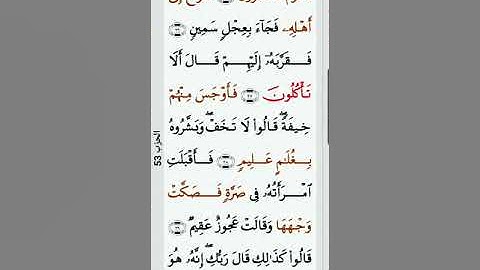 أَهْلِهِۦ فَجَآءَ بِعِجْلٍ سَمِينٍ ۝٢٦
فَقَرَّبَهُۥٓ إِلَيْهِمْ قَالَ أَلَا
تَأْكُلُونَ ۝٢٧ فَأَوْجَسَ مِنْهُمْ
خِيفَةً ۖ قَالُوا۟ لَا تَخَفْ ۖ وَبَشَّرُوهُ
بِغُلَٰمٍ عَلِيمٍ ۝٢٨ فَأَقْبَلَتِ
ٱمْرَأَتُهُۥ فِى صَرَّةٍ فَصَكَّتْ
وَجْهَهَا وَقَالَتْ عَجُوزٌ عَقِيمٌ ۝٢٩
قَالُوا۟ كَذَٰلِكِ قَالَ رَبُّكِ ۖ إِنَّهُۥ هُوَ
الحزب 53